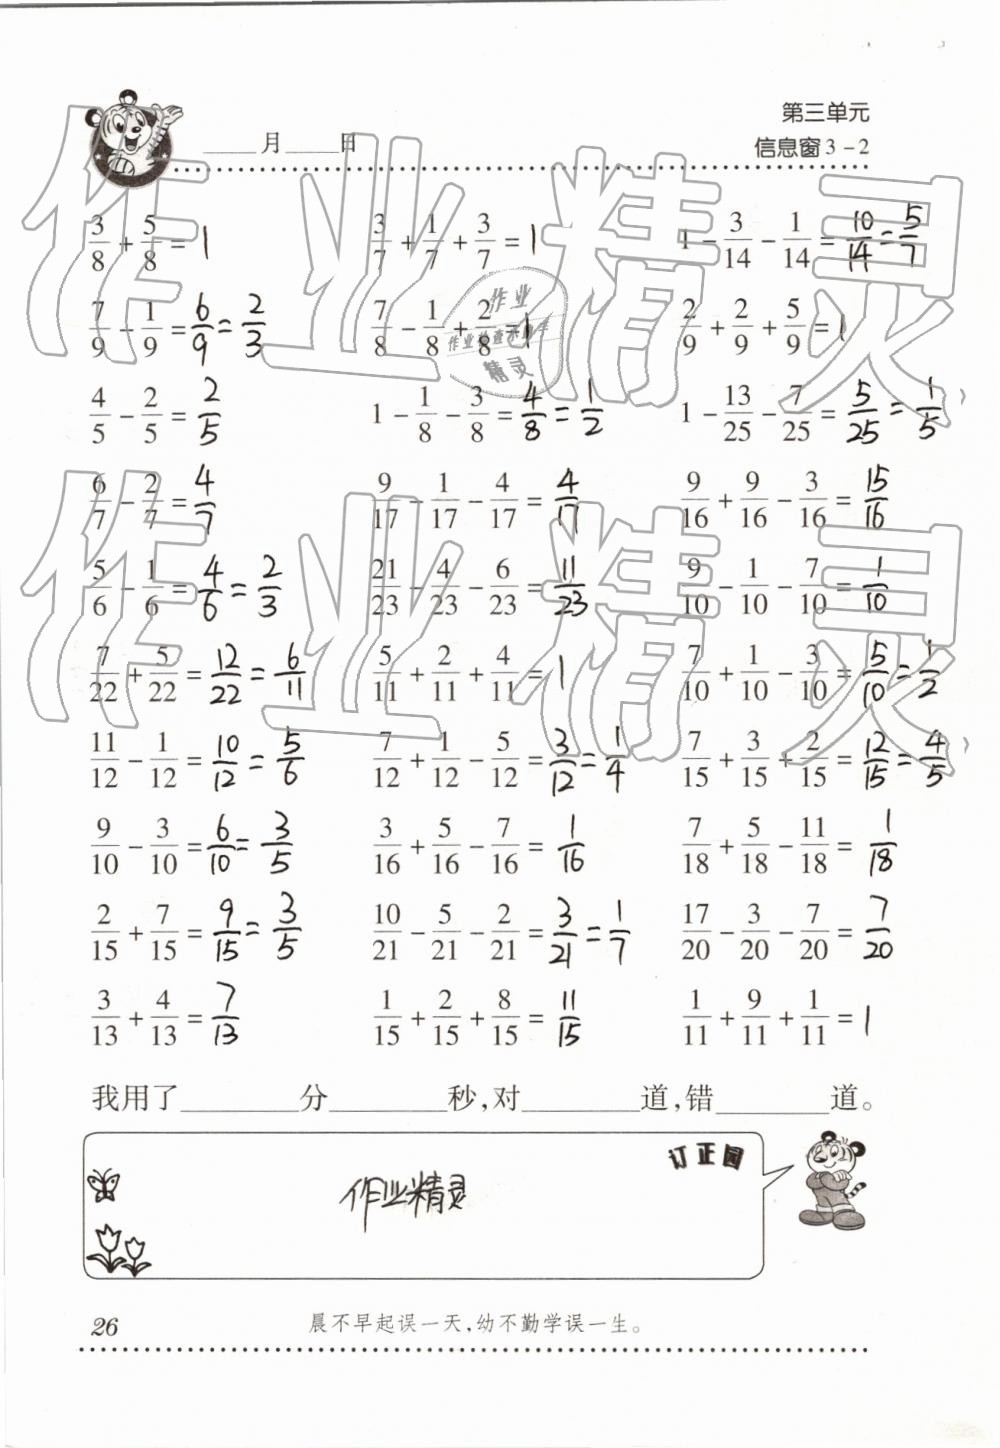 第三单元
____月____日 信息窗3-2
3/8 + 5/8 = 1 3/7 + 1/7 + 3/7 = 1 1 - 3/14 - 1/14 = 10/14 = 5/7
7/9 - 1/9 = 6/9 = 2/3 7/8 - 1/8 + 2/8 = 1 2/9 + 2/9 + 5/9 = 1
4/5 - 2/5 = 2/5 1 - 1/8 - 3/8 = 4/8 = 1/2 1 - 13/25 - 7/25 = 5/25 = 1/5
6/7 - 2/7 = 4/7 9/17 - 1/17 - 4/17 = 4/17 9/16 + 9/16 - 3/16 = 15/16
5/6 - 1/6 = 4/6 = 2/3 21/23 - 4/23 - 6/23 = 11/23 9/10 - 1/10 - 7/10 = 1/10
7/22 + 5/22 = 12/22 = 6/11 5/11 + 2/11 + 4/11 = 1 7/10 + 1/10 - 3/10 = 5/10 = 1/2
11/12 - 1/12 = 10/12 = 5/6 7/12 + 1/12 - 5/12 = 3/12 = 1/4 7/15 + 3/15 + 2/15 = 12/15 = 4/5
9/10 - 3/10 = 6/10 = 3/5 3/16 + 5/16 - 7/16 = 1/16 7/18 + 5/18 - 11/18 = 1/18
2/15 + 7/15 = 9/15 = 3/5 10/21 - 5/21 - 2/21 = 3/21 = 1/7 17/20 - 3/20 - 7/20 = 7/20
3/13 + 4/13 = 7/13 1/15 + 2/15 + 8/15 = 11/15 1/11 + 9/11 + 1/11 = 1
我用了________分________秒,对________道,错________道。
订正园
作业精灵
26 晨不早起误一天,幼不勤学误一生。
作业精灵
作业精灵
作业
精灵